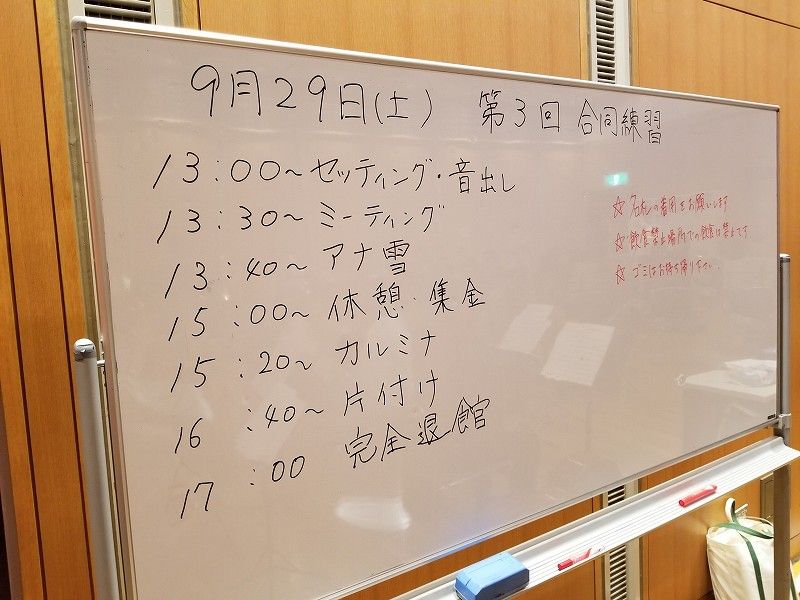 9月29日(土) 第3回 合同練習
13:00～セッティング・音出し
13:30～ミーティング
13:40～アナ雪
15:00～休憩・集金
15:20～カルミナ
16:40～片付け
17:00 完全退館
☆名札の着用をお願いします
☆飲食禁止場所での飲食は禁止です
☆ゴミはお持ち帰り下さい.